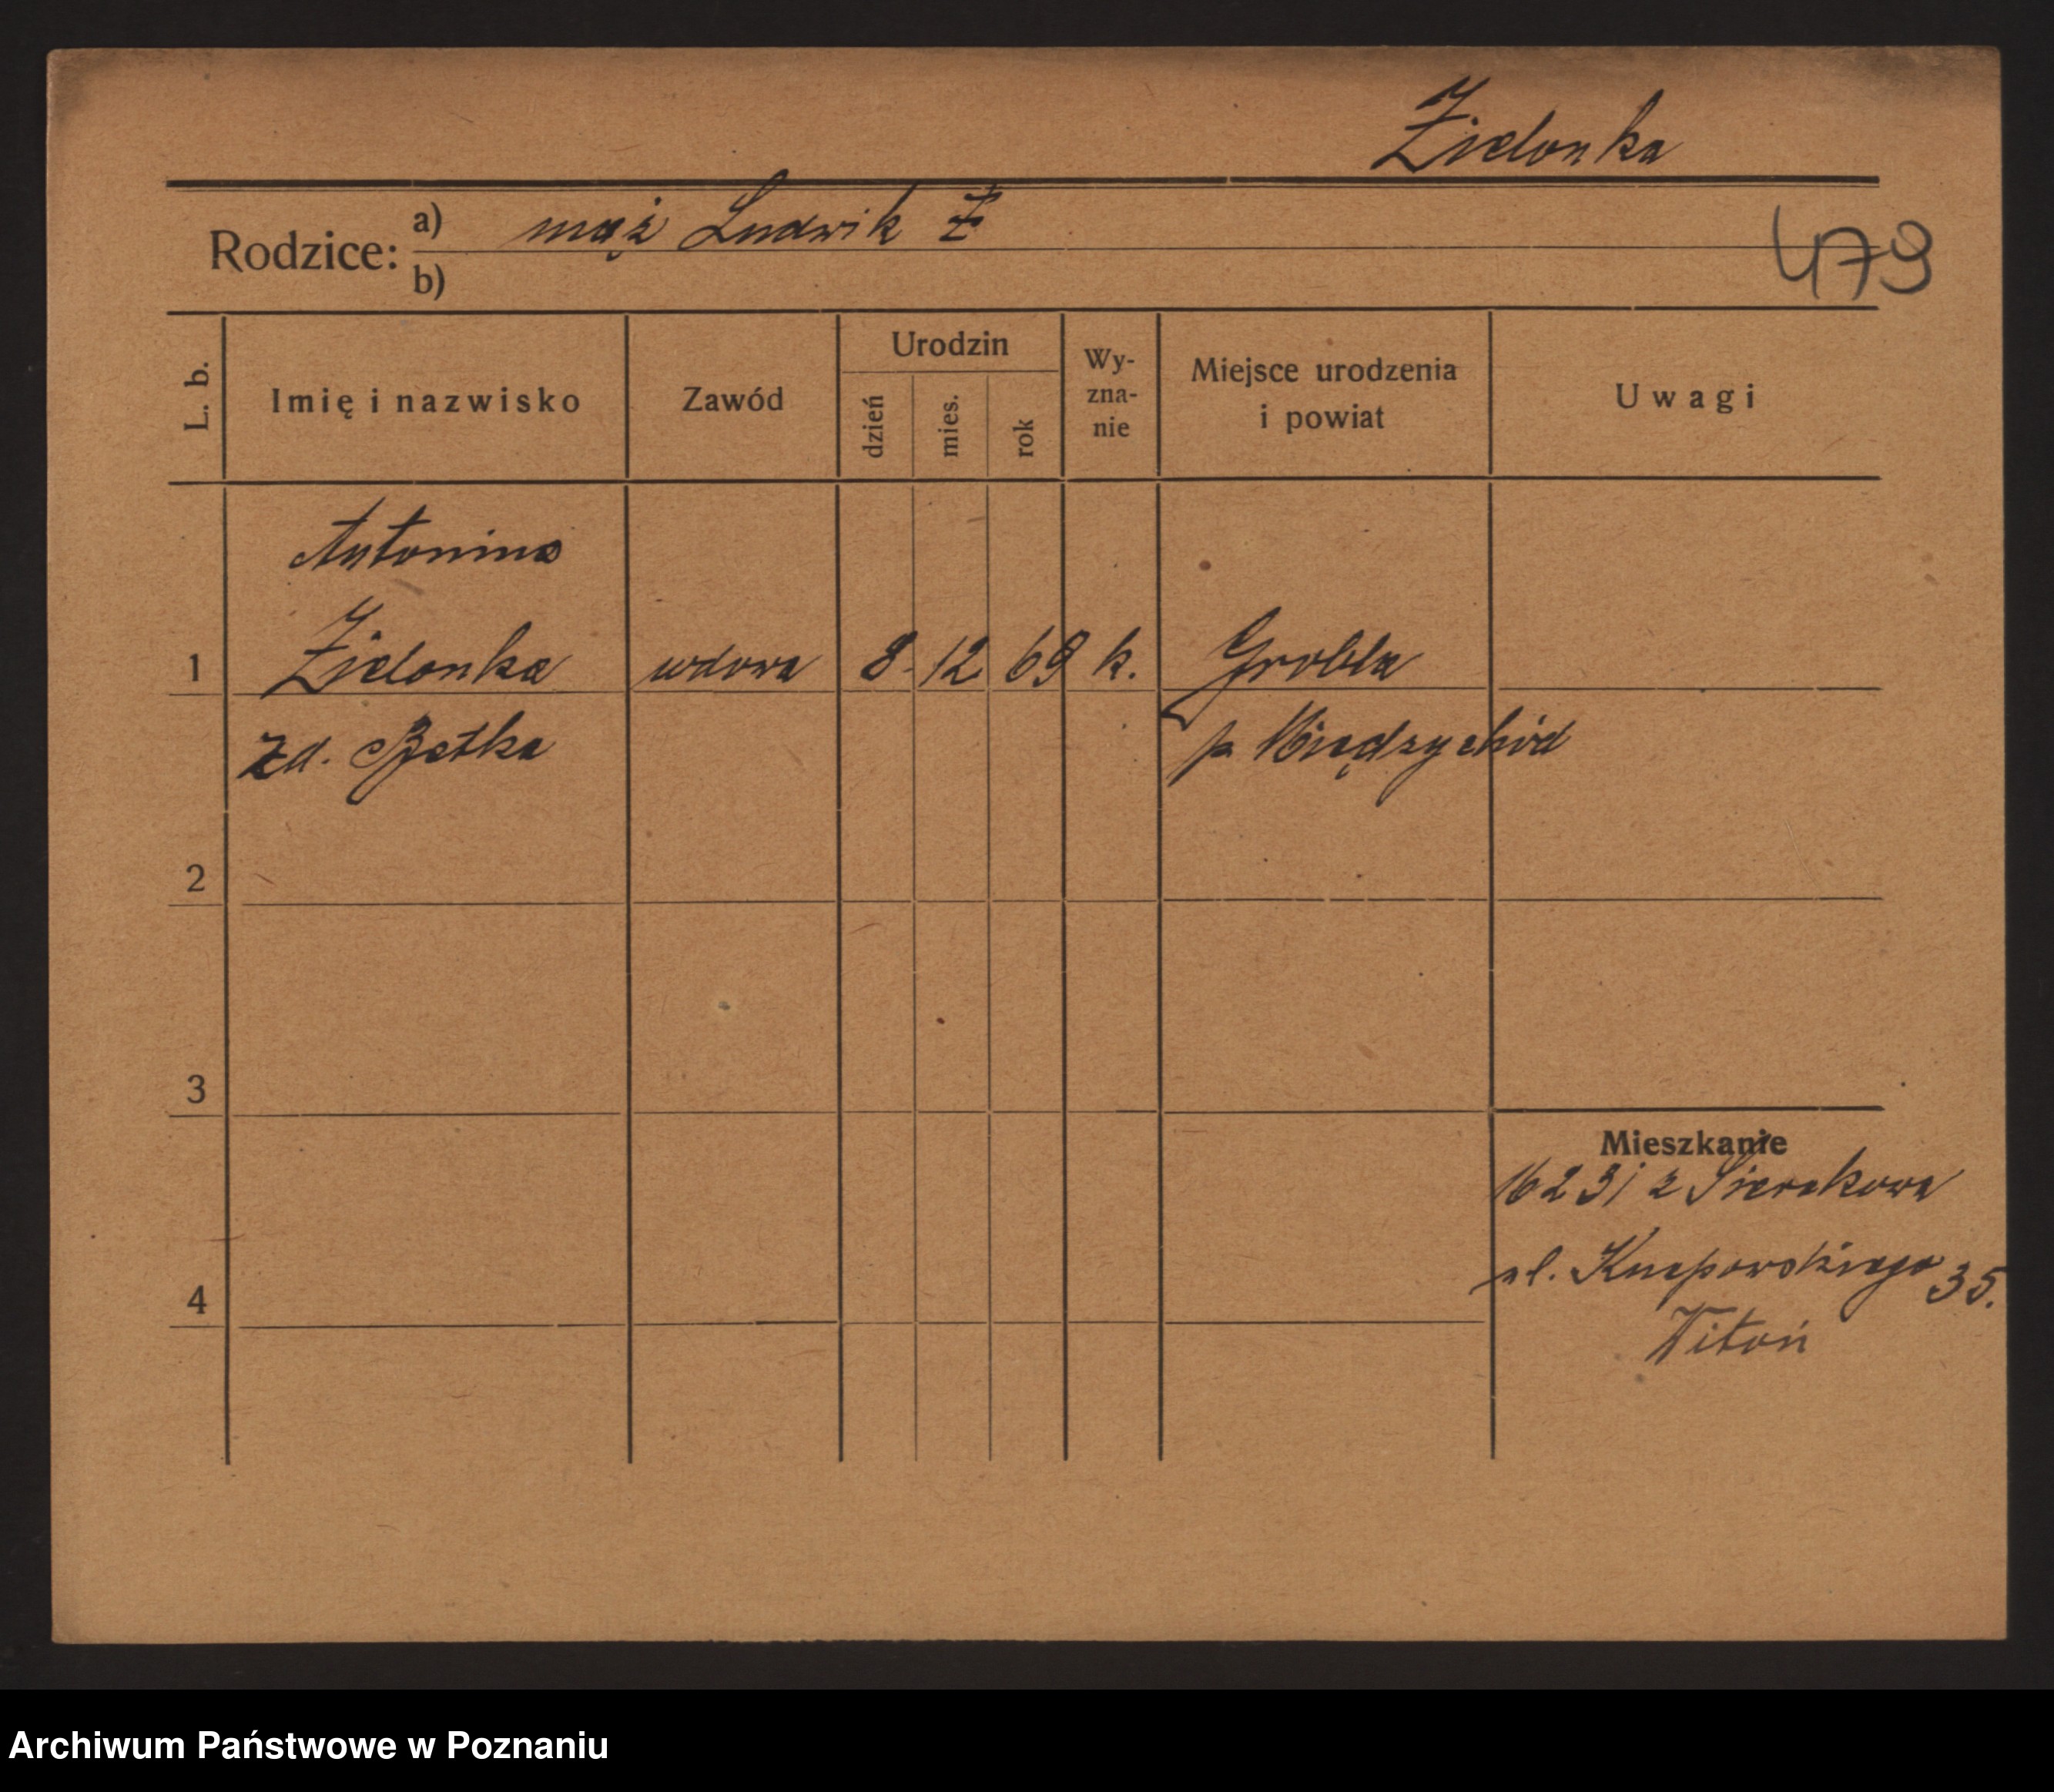 Zielonka
Rodzice: a) mąż Ludwik Z
b)
479
L. b.
Imię i nazwisko
Zawód
Urodzin
dzień
mies.
rok
Wy-
zna-
nie
Miejsce urodzenia
i powiat
Uwagi
Antonina
1 Zielonka wdowa 8. 12 69 k. Grobla
zd. Betka p Międzychód
2
3
Mieszkanie
16 2 31 z Sierakowa
ul. Knapowskiego 35.
4
Witoń
Archiwum Państwowe w Poznaniu